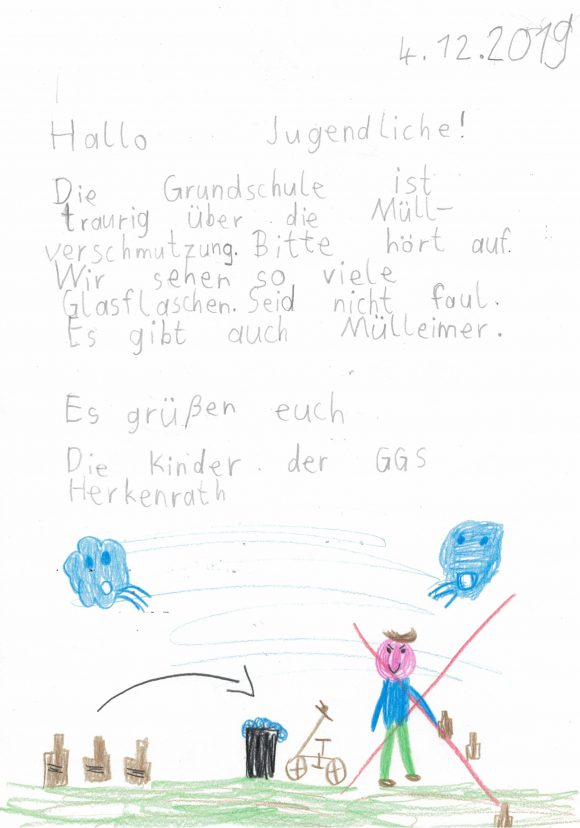 4.12.2019
Hallo Jugendliche!
Die Grundschule ist
traurig über die Müll-
verschmutzung. Bitte hört auf.
Wir sehen so viele
Glasflaschen. Seid nicht faul.
Es gibt auch Mülleimer.
Es grüßen euch
Die Kinder der GGS
Herkenrath